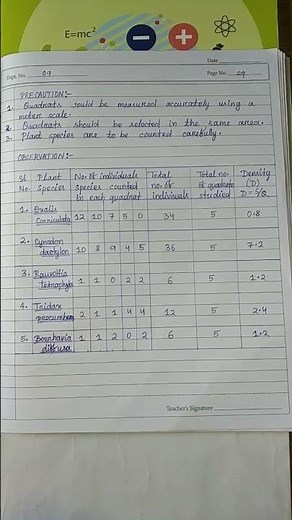 E=mc²
Date
Expt. No. 09
Page No. 29
PRECAUTION:-
1. Quadrats sould be measured accurately using a
metere scale.
2. Quadrats should be selected in the same area.
3. Plant species are to be counted carefully.
OBSERVATION:-
Sl. Plant No. of individuals Total Total no. Density
No. Species Species counted no. of of quadrats (D)
in each quadrat indiviuals studied D = S/Q
1. Oxalis
Corniculata 12 10 7 5 0 34 5 0.8
2. Cynodon
dactylon 10 8 9 4 5 36 5 7.2
3. Rauvolfia
tetraphylla 1 1 0 2 2 6 5 1.2
4. Tridax
procumbens 2 1 1 4 4 12 5 2.4
5. Boerhavia
diffusa 1 1 2 0 2 6 5 1.2
Teacher's Signature